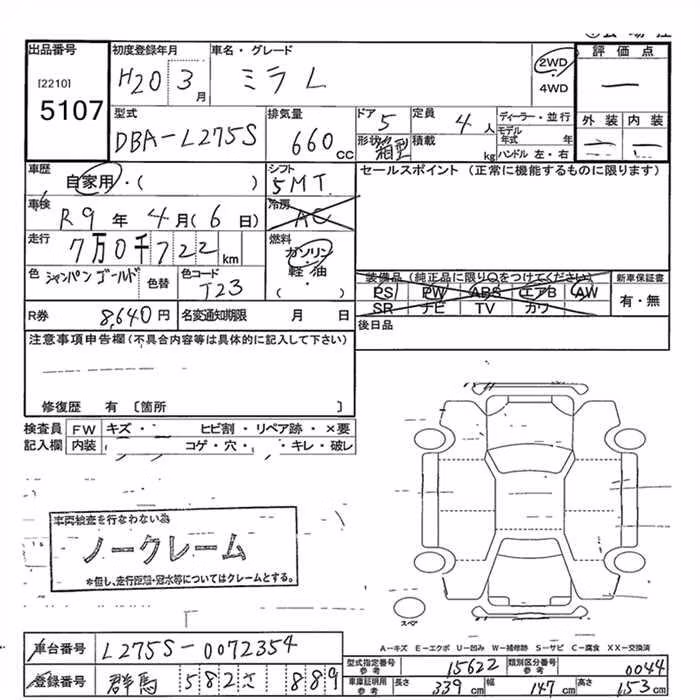 出品番号 初度登録年月 車名・グレード 2WD 評価点
[2210] H20 3月 ミラ L 4WD 一
5107 型式 排気量 ドア 定員 ディーラー・並行 外装 内装
DBA-L275S 660cc 5 4人 モデル年式 年
形状 箱型 積載 kg ハンドル 左・右
車歴 シフト セールスポイント (正常に機能するものに限ります)
自家用・( ) 5MT
車検 冷房
R9年 4月(6日) AC
走行 7万0千722km 燃料
ガソリン 装備品 (純正品に限り○をつけてください) 新車保証書
色 シャンパンゴールド 色替 色コード 軽油 PS PW ABS エアB AW 有・無
J23 ( ・ ) SR ナビ TV カワ
R券 8,640円 名変通知期限 月 日 後日品
注意事項申告欄 (不具合内容等は具体的に記入して下さい)
修復歴 有 〔箇所 〕
検査員 FW キズ・ ヒビ割・リペア跡・×要
記入欄 内装 コゲ・穴・ ・キレ・破レ
車両検査を行なわない為
ノークレーム
*但し、走行距離・冠水等についてはクレームとする。
スペア
A-キズ E-エクボ U-凹み W-補修跡 S-サビ C-腐食 XX-交換済
車台番号 L275S-0072354
型式指定番号 参考 15622 類別区分番号 参考 0044
登録番号 群馬 582 さ 889
車庫証明用 参考 長さ 339cm 幅 147cm 高さ 153cm